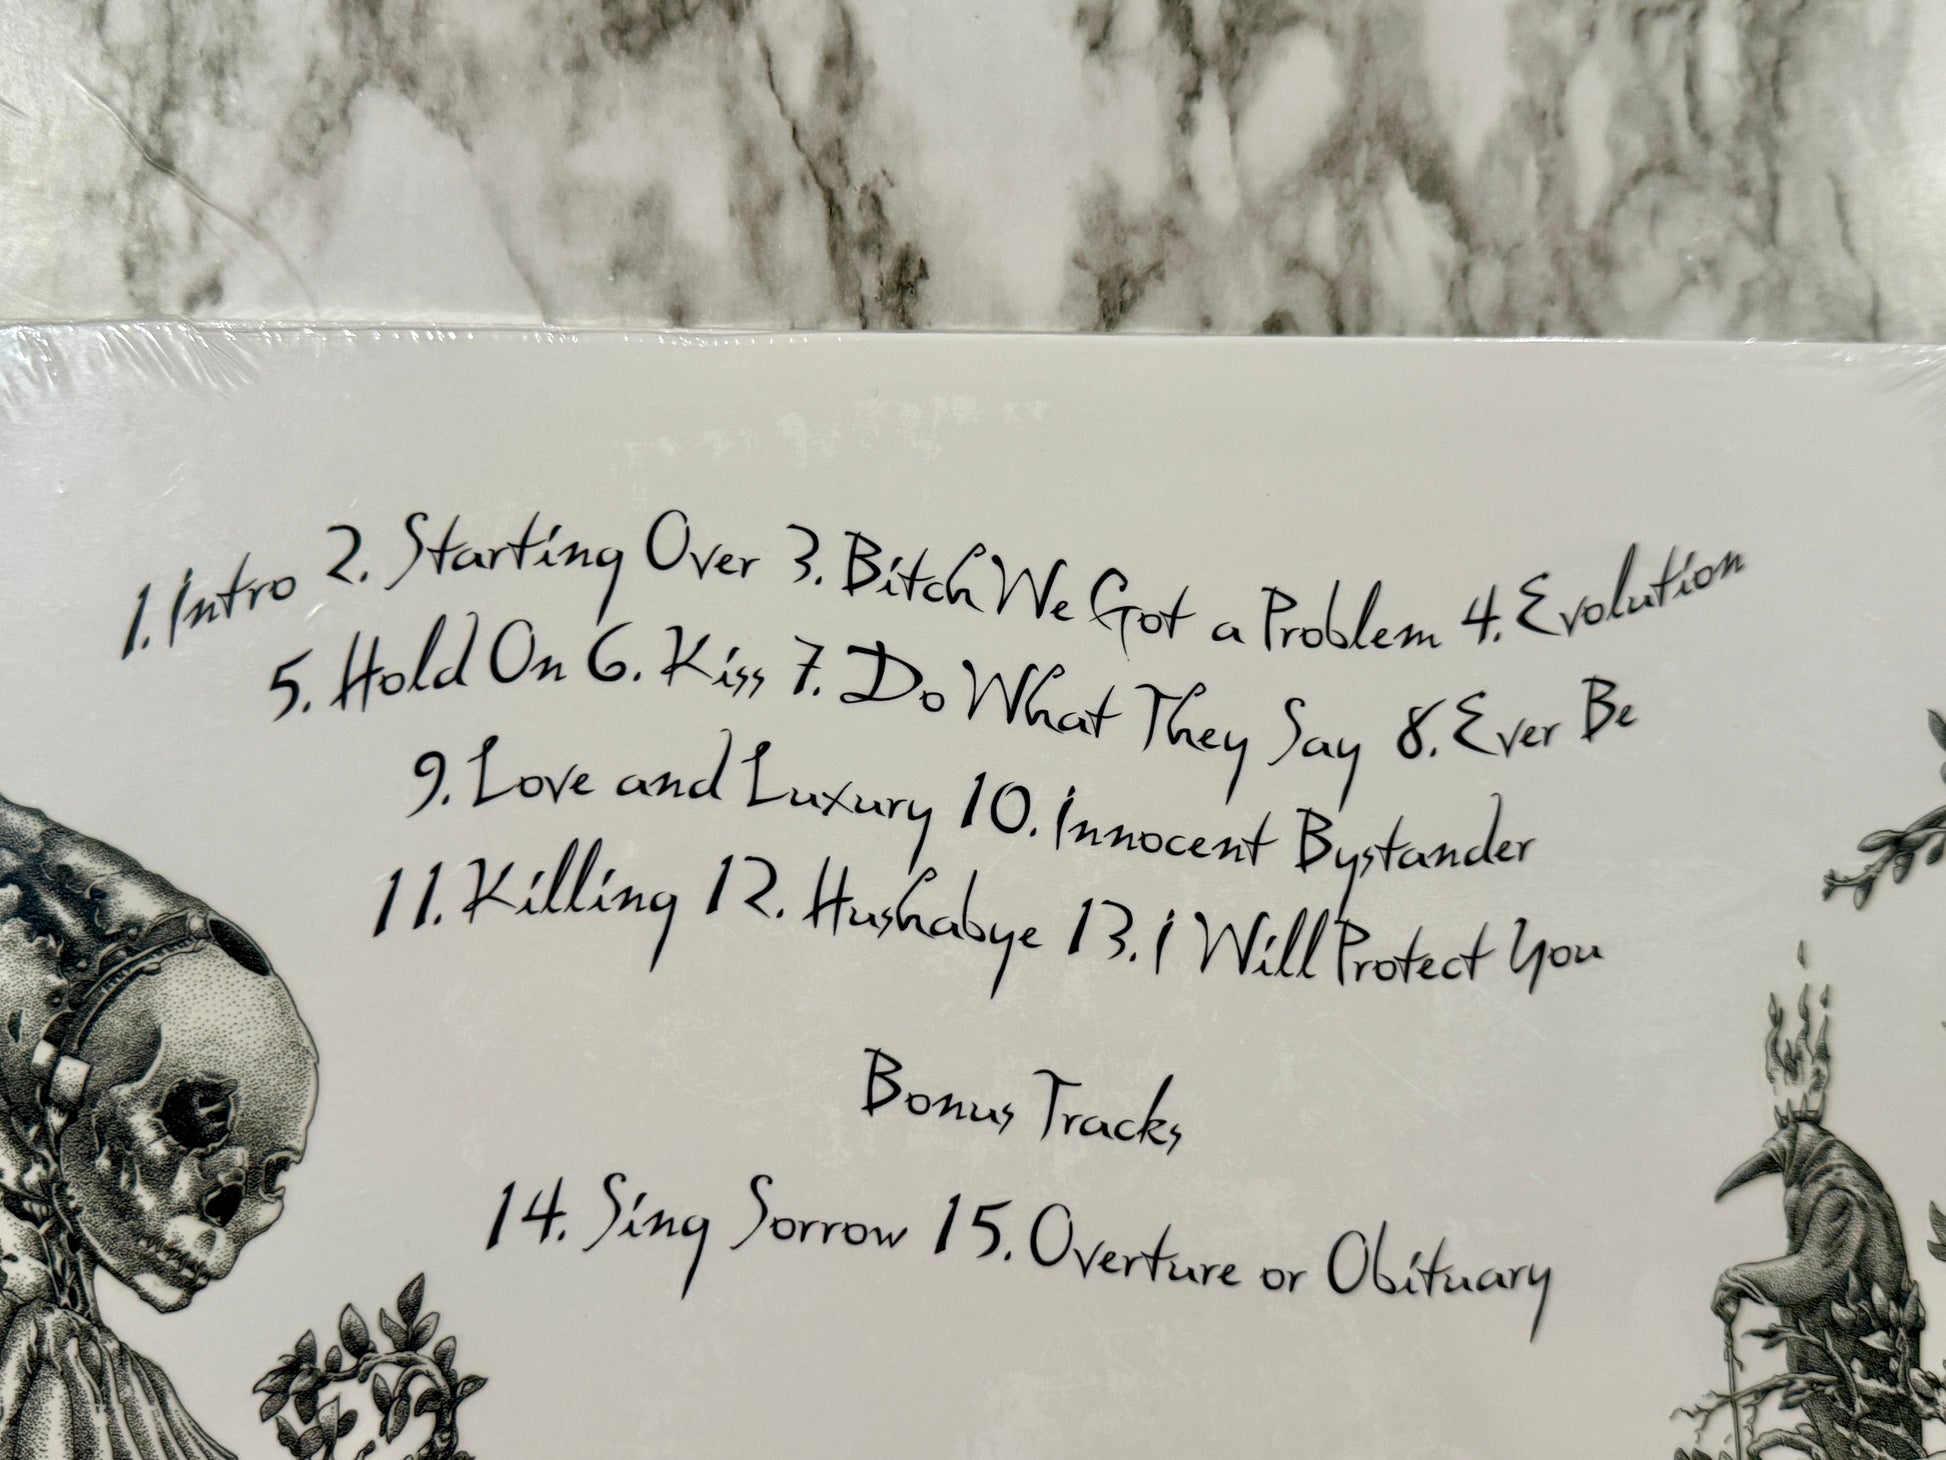 1. Intro 2. Starting Over 3. Bitch We Got a Problem 4. Evolution
5. Hold On 6. Kiss 7. Do What They Say 8. Ever Be
9. Love and Luxury 10. Innocent Bystander
11. Killing 12. Hushabye 13. I Will Protect You
Bonus Tracks
14. Sing Sorrow 15. Overture or Obituary